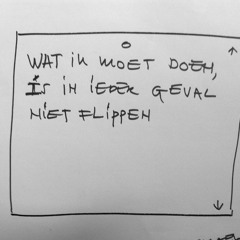 WAT IK MOET DOEN,
IS IN IEDER GEVAL
NIET FLIPPEN